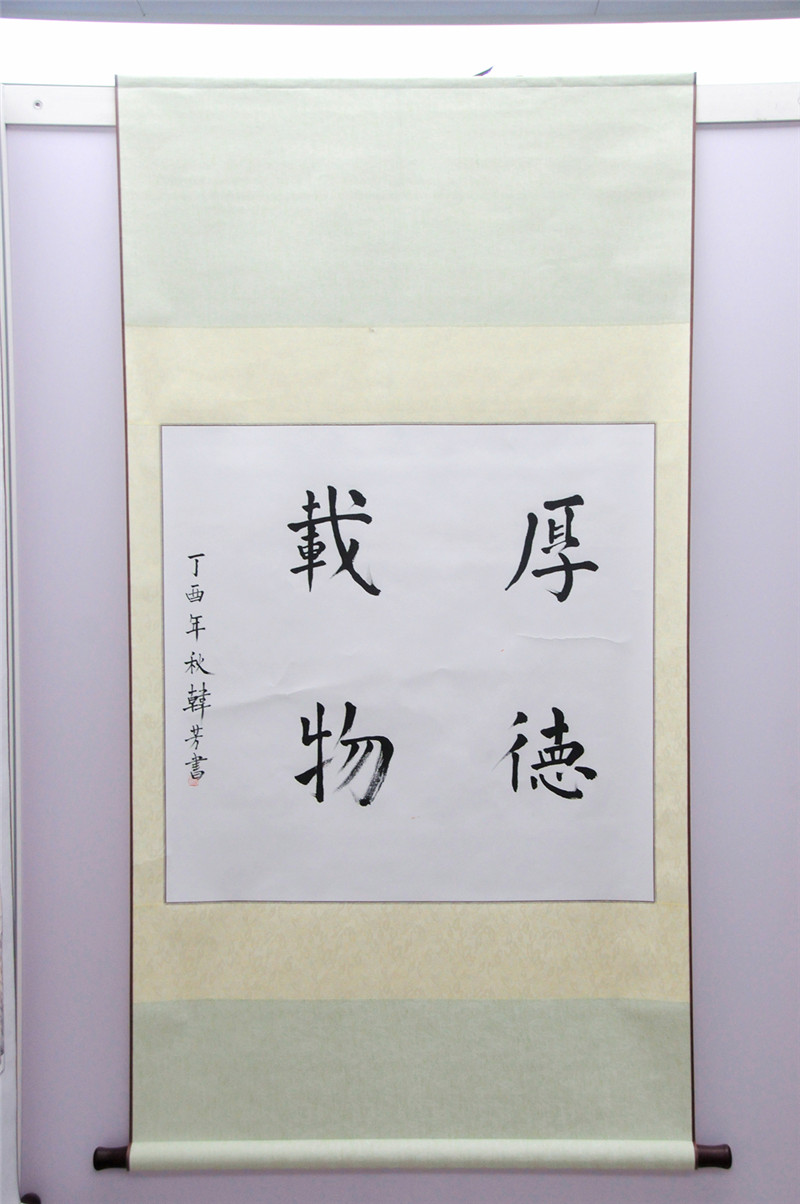 厚德
載物
丁酉年秋韓芳書